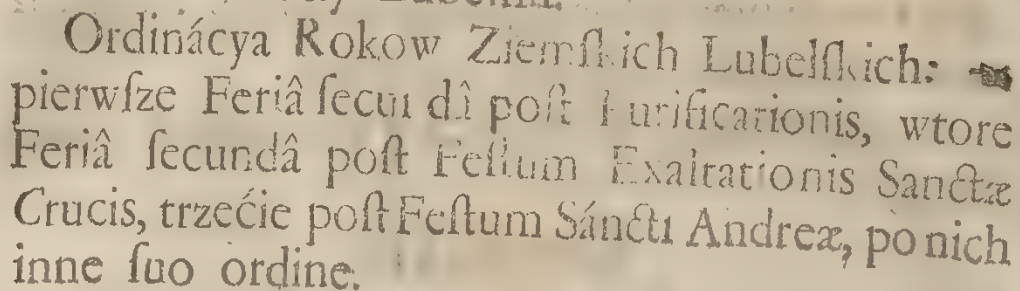 Ordinácya Rokow Ziemſkich Lubelſkich:
pierwſze Feriâ ſecundâ poſt Purificationis, wtore
Feriâ ſecundâ poſt Feſtum Exaltationis Sanctæ
Crucis, trzećie poſt Feſtum Sáncti Andreæ, po nich
inne ſuo ordine.